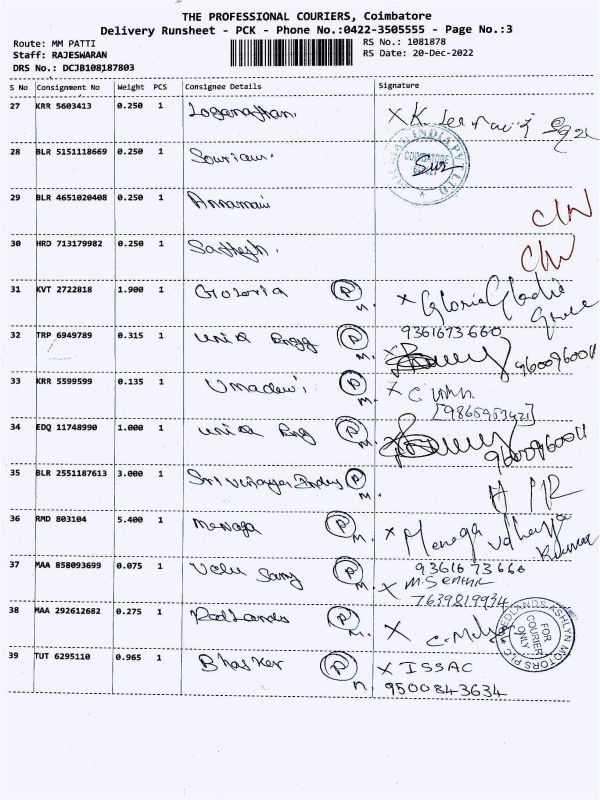 THE PROFESSIONAL COURIERS, Coimbatore
Delivery Runsheet - PCK - Phone No.:0422-3505555 - Page No.:3
Route: MM PATTI RS No.: 1081878
Staff: RAJESWARAN RS Date: 20-Dec-2022
DRS No.: DCJB108187803
S No Consignment No Weight PCS Consignee Details Signature
27 KRR 5603413 0.250 1 Loganathan.
28 BLR 5151118669 0.250 1
29 BLR 4651020408 0.250 1 Annamai
30 HRD 713179982 0.250 1 Sathesh.
31 KVT 2722818 1.900 1 Gloria P M. x Gloria
9361673660
32 TRP 6949789 0.315 1 Unik Engg P M. x 9600960011
33 KRR 5599599 0.135 1 Umadevi P M. x
34 EDQ 11748990 1.000 1 Unik Eng P M. 9600960011
35 BLR 2551187613 3.000 1 Sri Vinayaga P M.
36 RMD 803104 5.400 1 Menaga P M. x Menaga Udhaya Kumar
9361673660
37 MAA 858093699 0.075 1 Velu Samy P M. x M. Senthil
7639819934
38 MAA 292612682 0.275 1 Redlands P M. x
REDLANDS ASHLYN MOTORS PLC
FOR COURIER ONLY
39 TUT 6295110 0.965 1 Bhasker P M. x ISSAC
9500843634